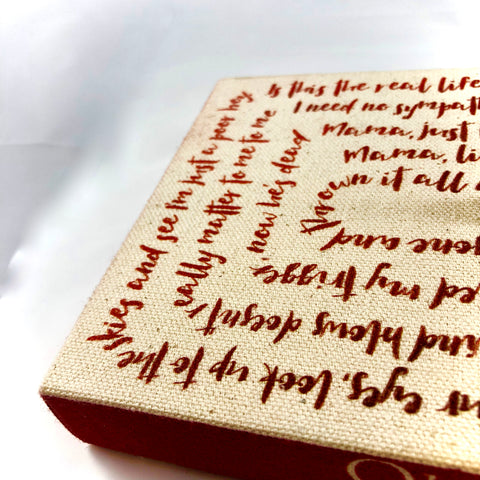 Is this the real life
ur eyes, look up to the
skies and see im just a poor boy
I need no sympath
ind blows doesnt
eally matter to me to me
Mama, just
ed my trigger,
now he's dead
Mama, li
gone and
thrown it all a